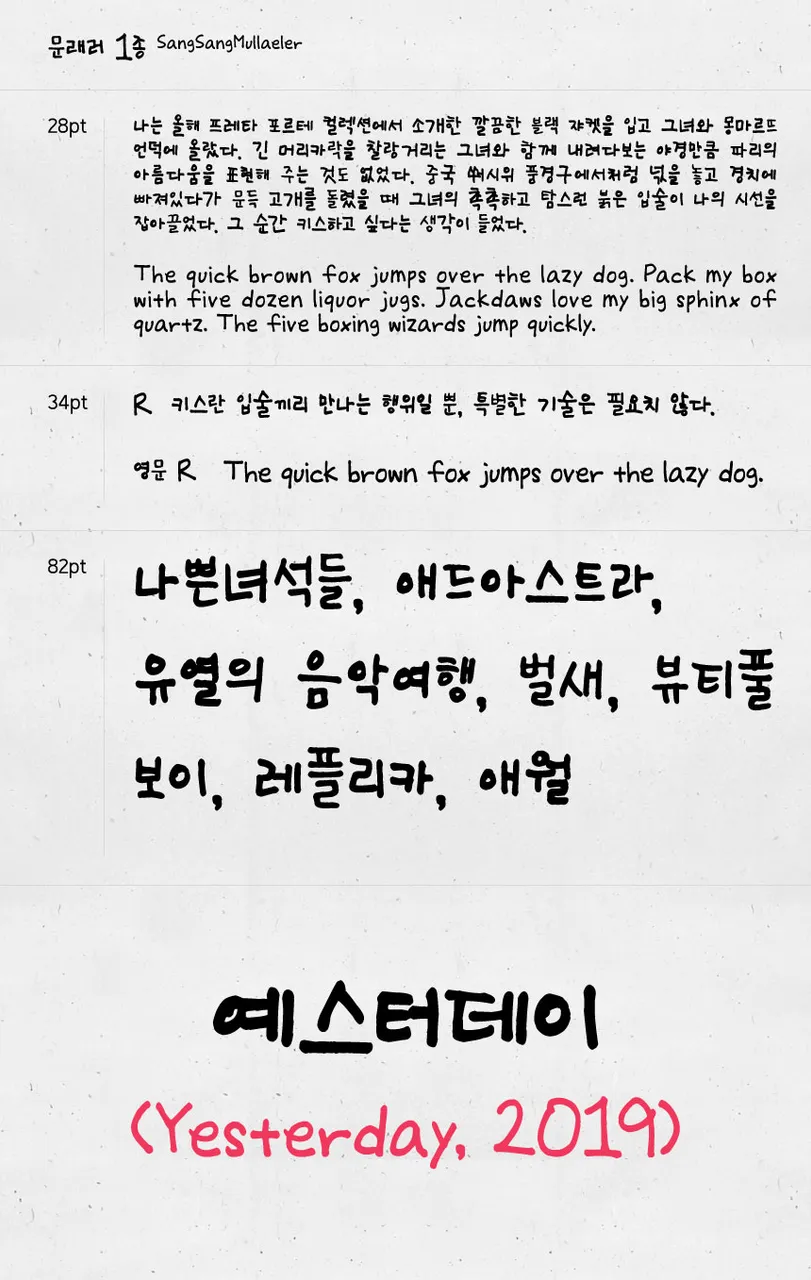 문래러 1종 SangSangMullaeler
28pt
나는 올해 프레타 포르테 컬렉션에서 소개한 깔끔한 블랙 쟈켓을 입고 그녀와 몽마르뜨
언떡에 올랐다. 긴 머리카락을 찰랑거리는 그녀와 함께 내려다보는 야경만큼 파리의
아름다움을 표현해 주는 것도 없었다. 중국 쒀시위 풍경구에서처럼 넋을 놓고 경치에
빠져있다가 문득 고개를 돌렸을 때 그녀의 촉촉하고 탐스런 붉은 입술이 나의 시선을
잡아끌었다. 그 순간 키스하고 싶다는 생각이 들었다.
The quick brown fox jumps over the lazy dog. Pack my box
with five dozen liquor jugs. Jackdaws love my big sphinx of
quartz. The five boxing wizards jump quickly.
34pt
R 키스란 입술끼리 만나는 행위일 뿐, 특별한 기술은 필요치 않다.
영문 R The quick brown fox jumps over the lazy dog.
82pt
나쁜녀석들, 애드아스트라,
유열의 음악여행, 벌새, 뷰티풀
보이, 레플리카, 애월
예스터데이
(Yesterday, 2019)